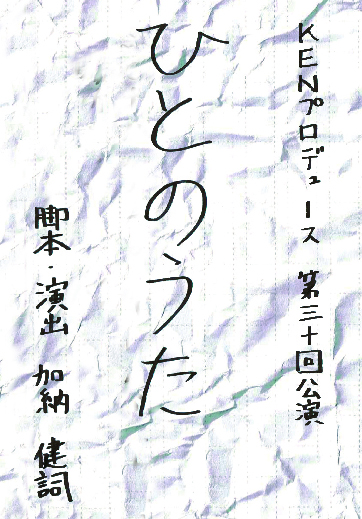 KENプロデュース 第三十回公演
ひとのうた
脚本・演出 加納 健詞